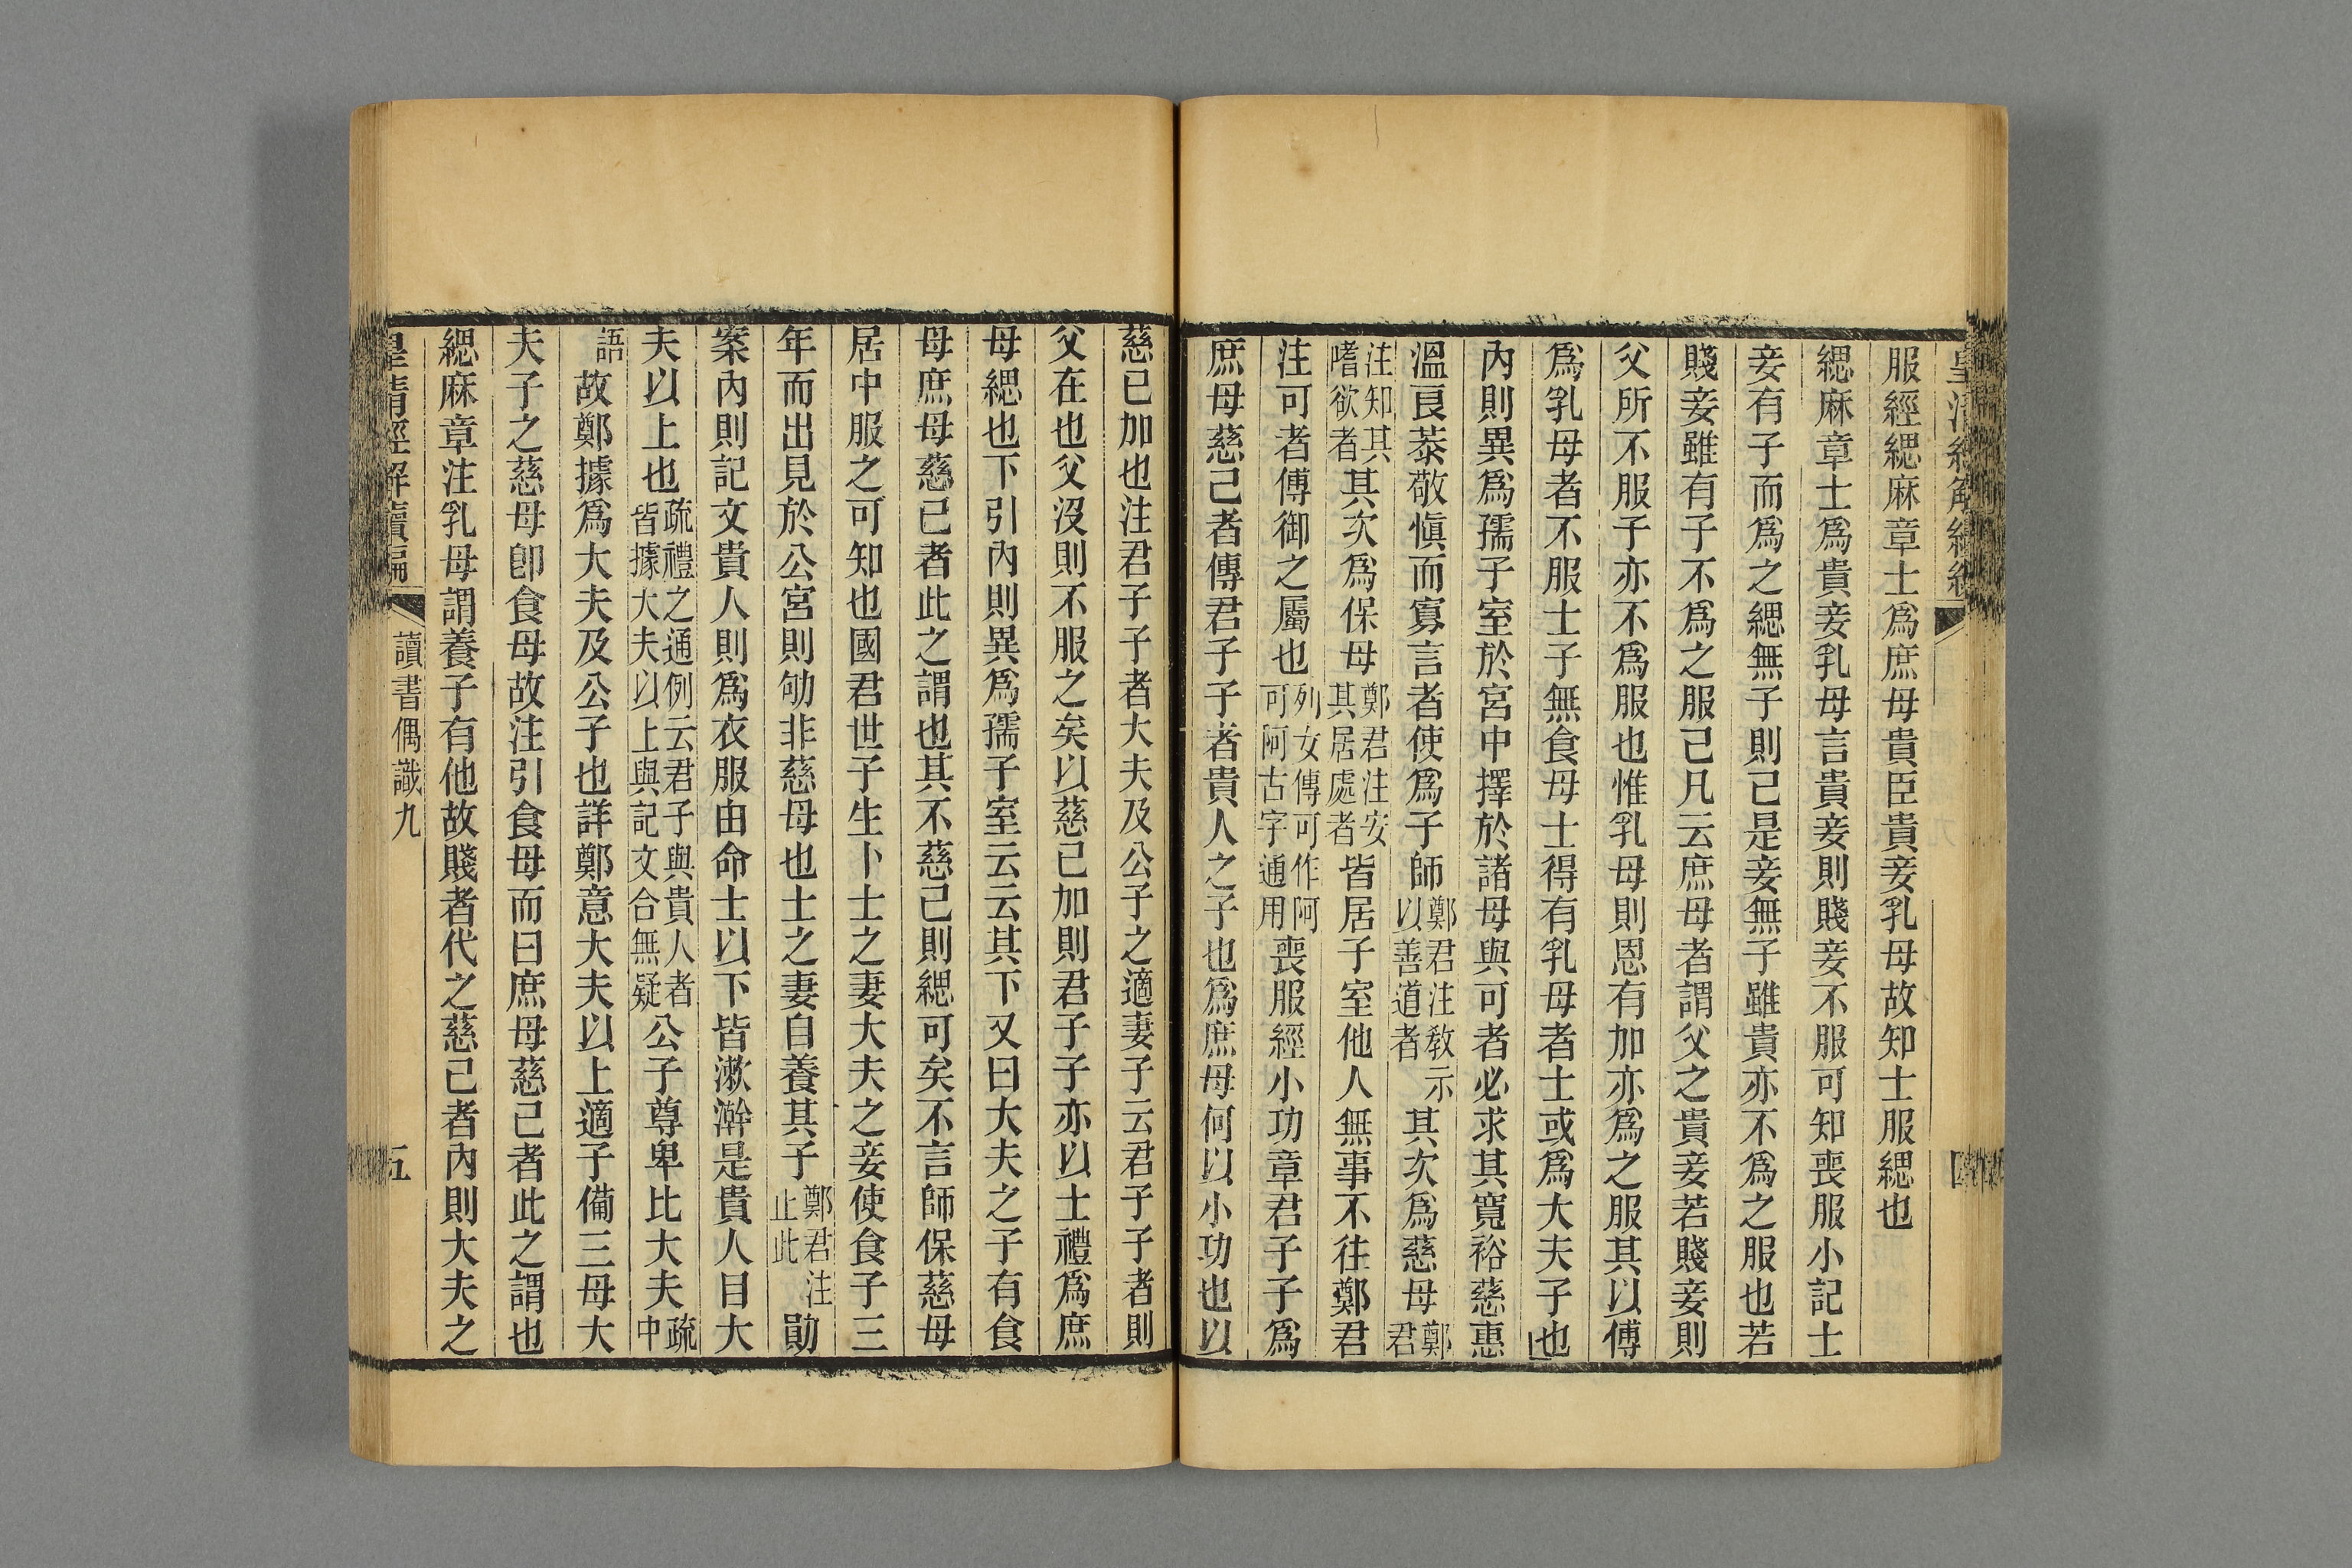 皇清經解續編
服經緦麻章士爲庶母貴臣貴妾乳母故知士服緦也
緦麻章士爲貴妾乳母言貴妾則賤妾不服可知喪服小記士
妾有子而爲之緦無子則已是妾無子雖貴亦不爲之服也若
賤妾雖有子不爲之服已凡云庶母者謂父之貴妾若賤妾則
父所不服子亦不爲服也惟乳母則恩有加亦爲之服其以傅
爲乳母者不服士子無食母士得有乳母者士或爲大夫子也
內則異爲孺子室於宮中擇於諸母與可者必求其寬裕慈惠
溫良恭敬愼而寡言者使爲子師鄭君注敎示以善道者其次爲慈母鄭君
注知其嗜欲者其次爲保母鄭君注安其居處者皆居子室他人無事不往鄭君
注可者傅御之屬也列女傳可作阿可阿古字通用喪服經小功章君子子爲
庶母慈己者傳君子子者貴人之子也爲庶母何以小功也以
慈己加也注君子子者大夫及公子之適妻子云君子子者則
父在也父沒則不服之矣以慈己加則君子子亦以士禮爲庶
母緦也下引內則異爲孺子室云云其下又曰大夫之子有食
母庶母慈己者此之謂也其不慈己則緦可矣不言師保慈母
居中服之可知也國君世子生卜士之妻大夫之妾使食子三
年而出見於公宮則劬非慈母也士之妻自養其子鄭君注止此勛
案內則記文貴人則爲衣服由命士以下皆漱澣是貴人目大
夫以上也疏禮之通例云君子與貴人者皆據大夫以上與記文合無疑公子尊卑比大夫疏中
語故鄭據爲大夫及公子也詳鄭意大夫以上適子備三母大
夫子之慈母卽食母故注引食母而曰庶母慈己者此之謂也
緦麻章注乳母謂養子有他故賤者代之慈己者內則大夫之
皇清經解續編
讀書偶識九
五